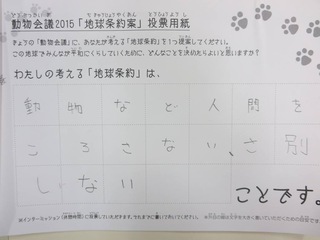 動物会議2015「地球条約案」投票用紙
きょうの「動物会議」に、あなたが考える「地球条約」を1つ提案してください。
この地球でみんなが平和にくらしていくために、どんなことを決めたらよいと思いますか?
わたしの考える「地球条約」は、
動物など人間を
ころさない、さ別
しない
ことです。